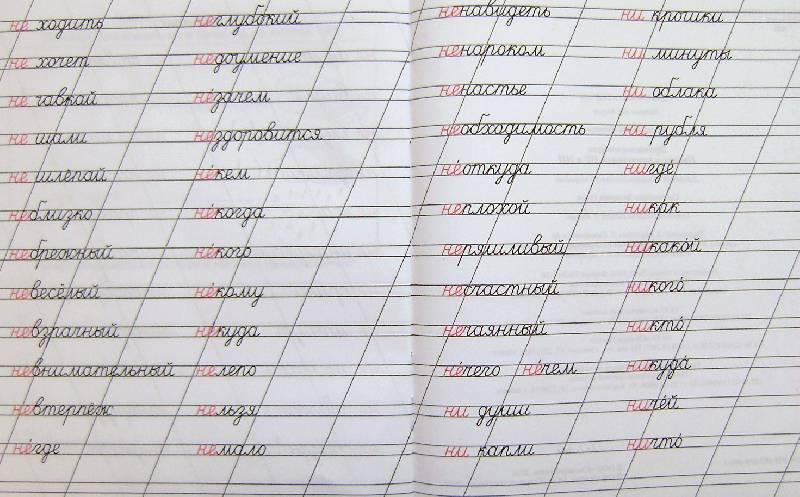 не ходить
не хочет
не гавкай
не шали
не шлёпай
неблизко
небрежный
невесёлый
невзрачный
невнимательный
невтерпёж
не́где
неглубокий
недоумение
не́зачем
нездоровится
не́кем
не́когда
не́кого
не́кому
не́куда
нелепо
нельзя
немало
ненавидеть
ненароком
ненастье
необходимость
не́откуда
неплохой
неряшливый
несчастный
нечаянный
не́чего не́чем
ни души
ни капли
ни крошки
ни минуты
ни облака
ни рубля
нигде́
ника́к
никако́й
никого́
никто́
никуда́
ниче́й
ничто́